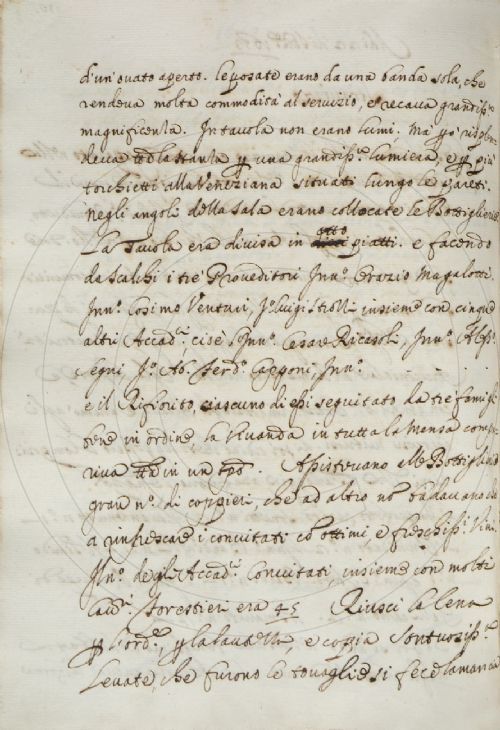 d'un'ovato aperto. le posate erano da una banda sola, che
rendeva molta commodità al servizio, e recava grandiss.a
magnificenza. In tavola non erano lumi, Ma però risplen-
deva tt.a la stanza p una grandiss.a lumiera, e p più
torchietti alla Veneziana situati lungo le pareti.
Negli angoli della sala erano collocate le Bottiglierie
La Tavola era divisa in otto piatti. e facendo
da scalchi i tre Proveditori Inn.o Orazio Magalotti
Inn.o Cosimo Venturi, Luigi Strozzi insieme con cinque
altri Accad.ci cioè Inn.o Cesare Ricasoli, Inn.o Aless.o
Segni Ab. Ferd.o Capponi, Inn.o
e il Rifiorito, ciascuno di essi seguitato da tre famigli
bene in ordine, la Vivanda in tutta la Mensa compa-
riva tt.a in un tpo. Assistevano alle Bottiglierie
gran n.o di coppieri, che ad altro no badavano che
a rinfrescare i convitati co ottimi, e freschiss.i Vini
Il n.o degl'Accad.ci Convitati, insieme con molti
Cav.ri forestieri era 45 Riuscì la Cena
p l'ord.e, p la e copia Sontuosiss.a
Levate, che furono le tovaglie si fece la mancia